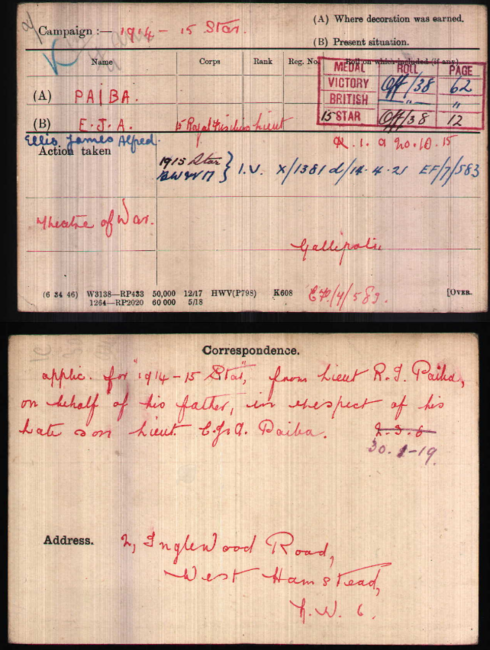 Campaign :— 1914 - 15 Star.
(A) Where decoration was earned.
(B) Present situation.
Name Corps Rank Reg. No. Roll on which included (if any).
MEDAL ROLL PAGE
VICTORY Off/38 62
BRITISH " "
15 STAR Off/38 12
(A) PAIBA.
(B) E.J.A. Royal Fusiliers Lieut
Ellis James Alfred.
K. 1. a 20.10.15
Action taken
1915 Star
BW & V } I.V. X/1381 d/14.4.21 EF/7/583
Theatre of War.
Gallipoli
(6 34 46) W3138—RP433 50,000 12/17 HWV(P798) K608
1264—RP2020 60 000 5/18
EF/7/583.
[OVER.
Correspondence.
applic. for "1914-15 Star", from Lieut R.J. Paiba,
on behalf of his father, in respect of his
late son Lieut E.J.A. Paiba. 2.3.8
30.1-19.
Address. 2, Inglewood Road,
West Hamstead,
N.W. 6.